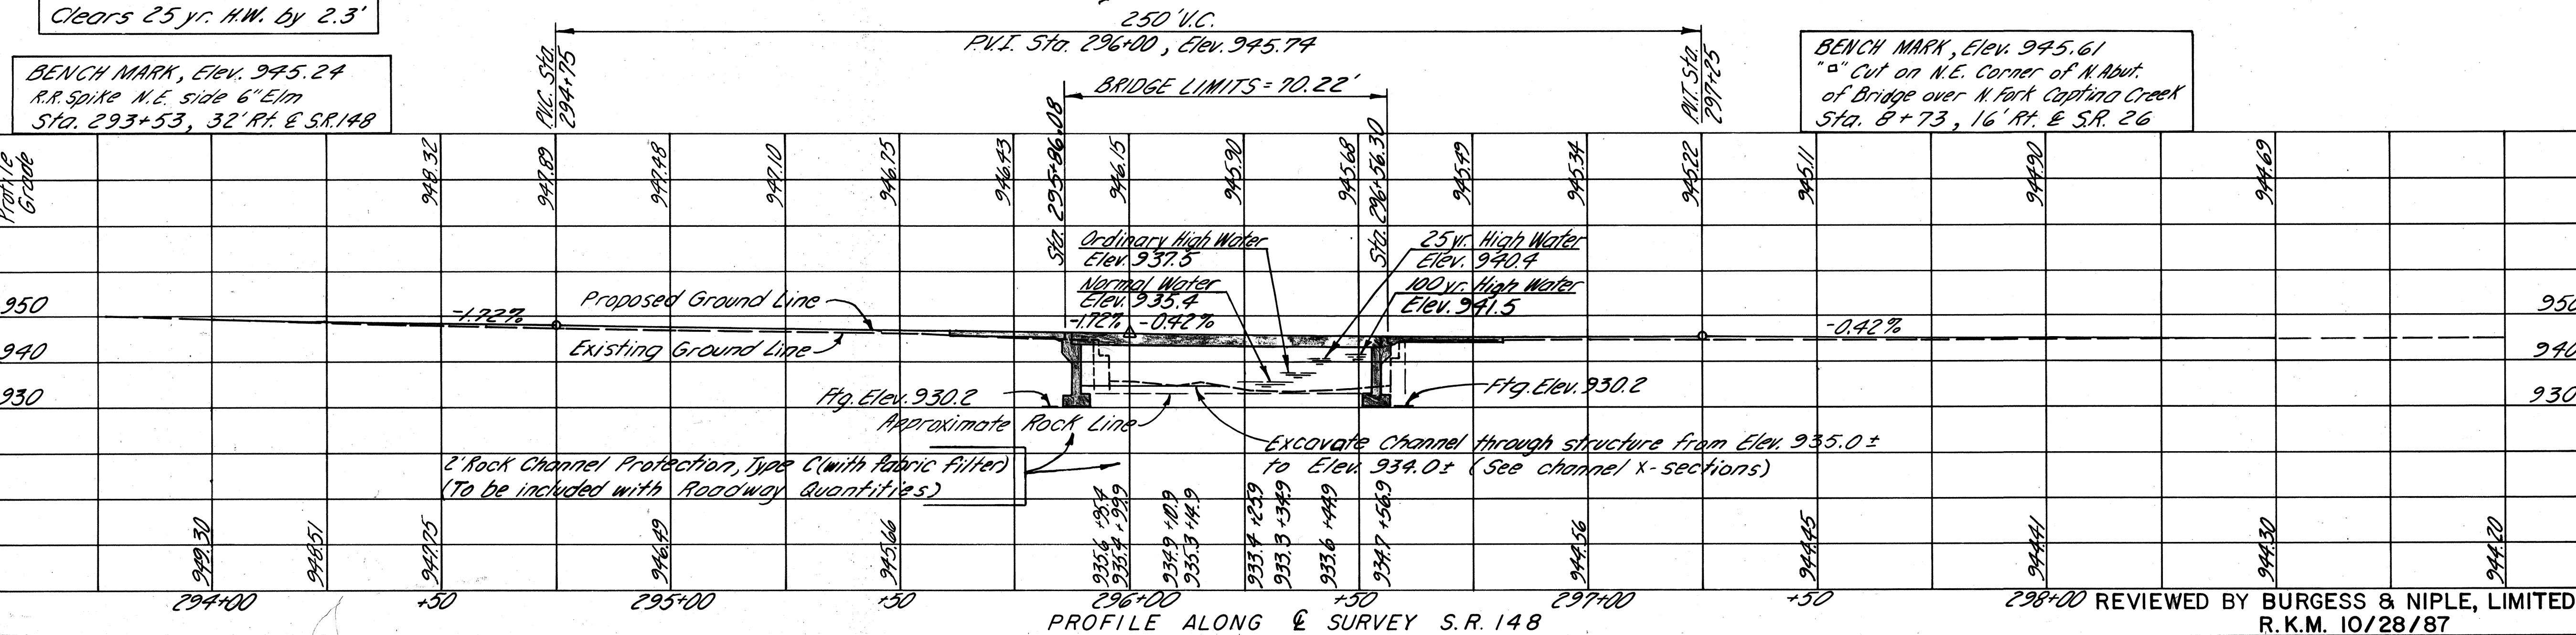 Clears 25 yr. H.W. by 2.3'
250' V.C.
P.V.I. Sta. 296+00, Elev. 945.74
BENCH MARK, Elev. 945.24
R.R. Spike N.E. side 6" Elm
Sta. 293+53, 32' Rt. ℄ S.R. 148
P.V.C. Sta.
294+75
BRIDGE LIMITS = 70.22'
P.V.T. Sta.
297+25
BENCH MARK, Elev. 945.61
"□" Cut on N.E. Corner of N. Abut.
of Bridge over N. Fork Captina Creek
Sta. 8+73, 16' Rt. ℄ S.R. 26
Profile
Grade
948.32
947.89
947.48
947.10
946.75
946.43
Sta. 295+86.08
946.15
945.90
945.68
Sta. 296+56.30
945.49
945.34
945.22
945.11
944.90
944.69
Ordinary High Water
Elev. 937.5
25 yr. High Water
Elev. 940.4
Normal Water
Elev. 935.4
100 yr. High Water
Elev. 941.5
950
-1.72%
Proposed Ground Line
-1.72%
-0.42%
-0.42%
950
940
Existing Ground Line
940
930
Ftg. Elev. 930.2
Ftg. Elev. 930.2
930
Approximate Rock Line
Excavate Channel through structure from Elev. 935.0±
to Elev. 934.0± (See channel X-sections)
2' Rock Channel Protection, Type C (with fabric filter)
(To be included with Roadway Quantities)
949.30
948.51
947.75
946.49
945.66
935.6 +95.4
935.4 +99.9
934.9 +10.9
935.3 +14.9
933.4 +25.9
933.3 +34.9
933.6 +44.9
934.7 +56.9
944.56
944.45
944.41
944.30
944.20
294+00
+50
295+00
+50
296+00
+50
297+00
+50
298+00
PROFILE ALONG ℄ SURVEY S.R. 148
REVIEWED BY BURGESS & NIPLE, LIMITED
R.K.M. 10/28/87